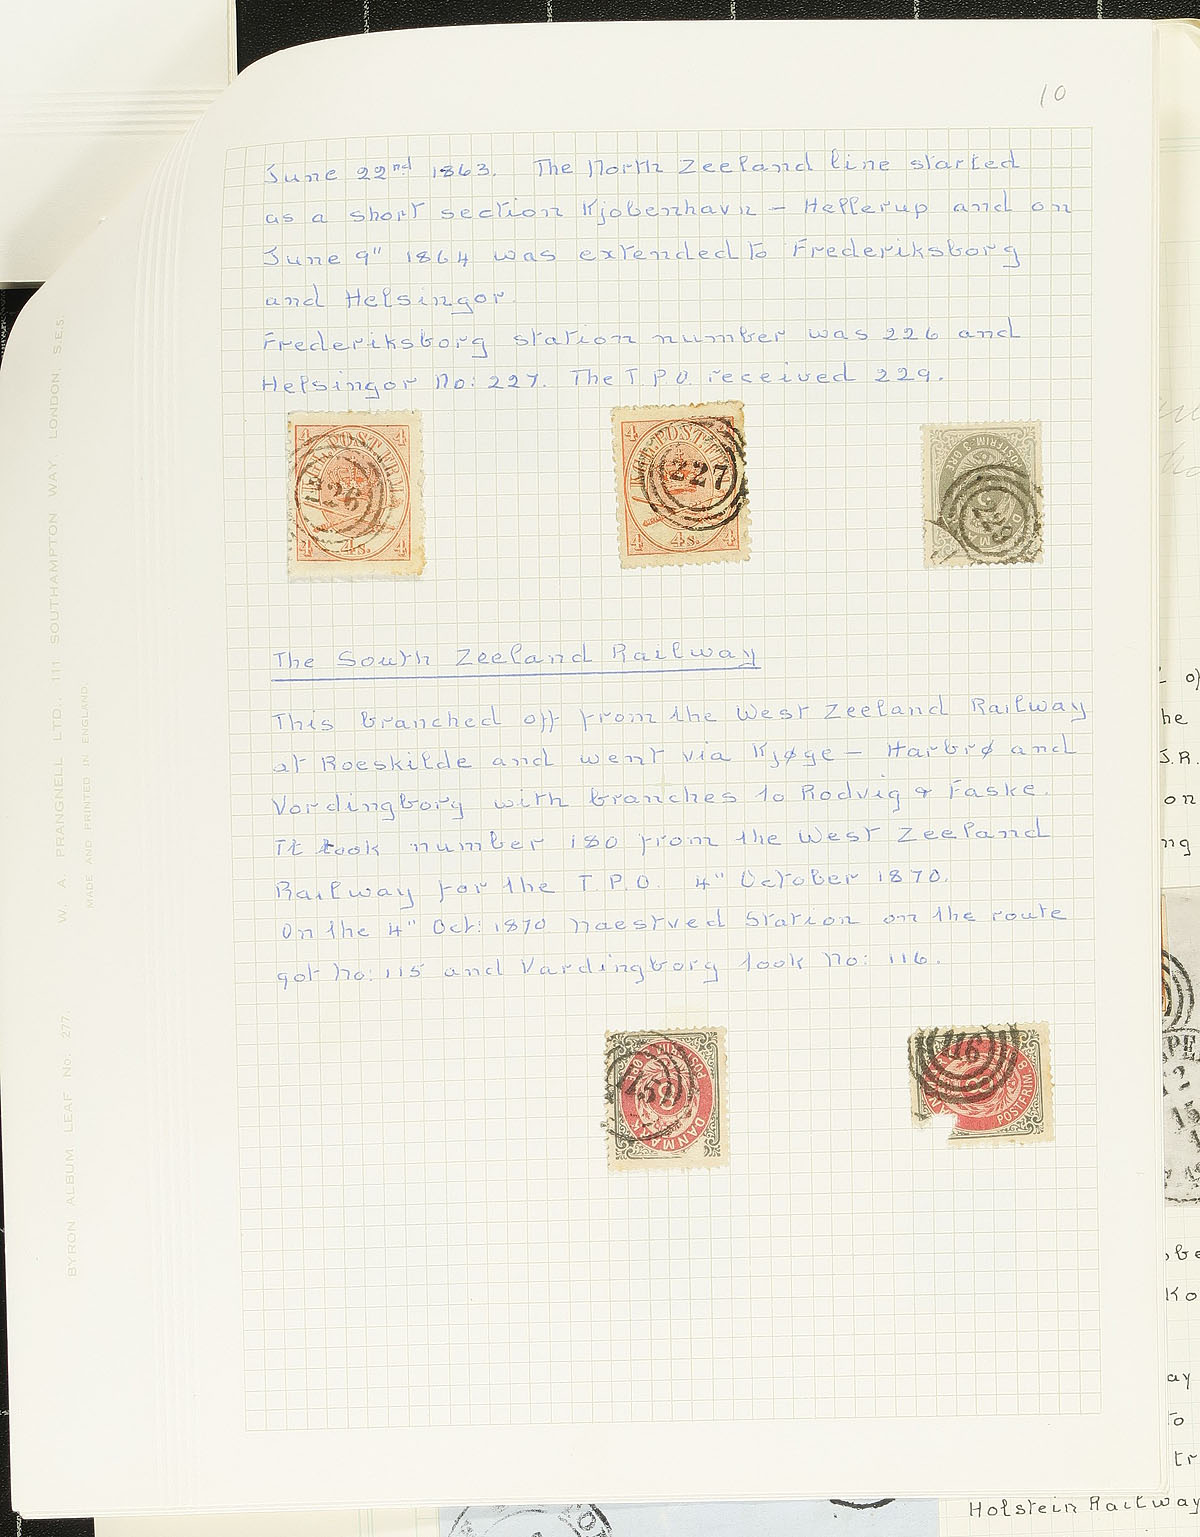 10
June 22nd 1863. The North Zeeland line started
as a short section Kjobenhavn - Hellerup and on
June 9" 1864 was extended to Frederiksborg
and Helsingor.
Frederiksborg station number was 226 and
Helsingor No: 227. The T.P.O. received 229.
4 4
4s.
4 4
26
4 4
227
4 4s. 4
POSTFRIM. 3 ØRE
229
The South Zeeland Railway
This branched off from the West Zeeland Railway
at Roeskilde and went via Kjøge - Harbrø and
Vordingborg with branches to Rodvig & Faske.
It took number 180 from the West Zeeland
Railway for the T.P.O. 4" October 1870.
On the 4" Oct: 1870 Naestved Station on the route
got No: 115 and Vardingborg took No: 116.
8
DANMARK
116
POSTFRIM 8
W. A PRANGNELL LTD., 111 SOUTHAMPTON WAY, LONDON S.E.5.
MADE AND PRINTED IN ENGLAND.
BYRON ALBUM LEAF No. 277.
he
J.R.
on
ng
ay
to
Holstein Railway